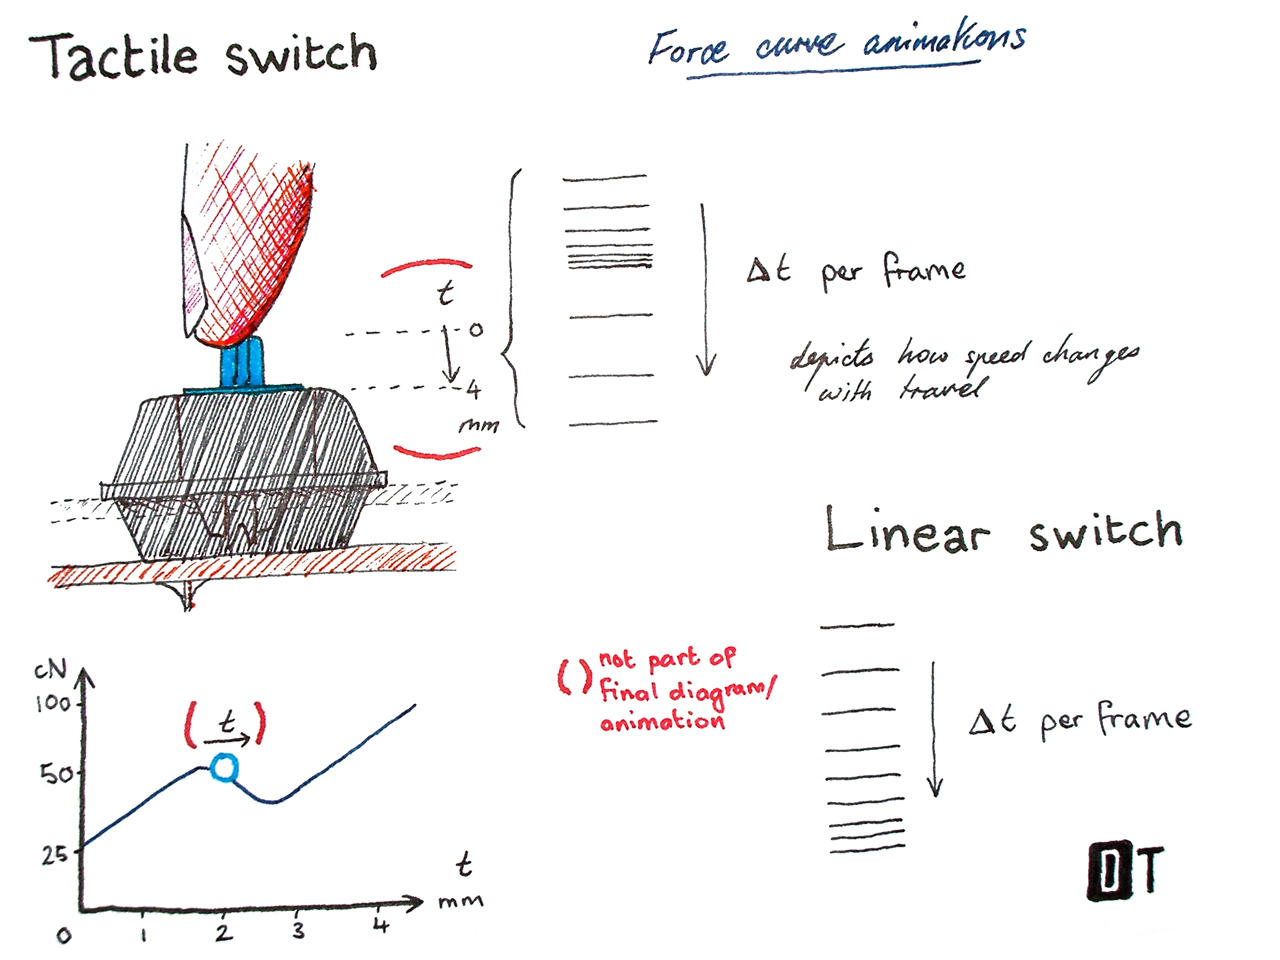 Tactile switch
Force curve animations
t
0
4
mm
Δt per frame
depicts how speed changes
with travel
Linear switch
cN
100
50
25
( t )
t
mm
0 1 2 3 4
( ) not part of
final diagram/
animation
Δt per frame
DT